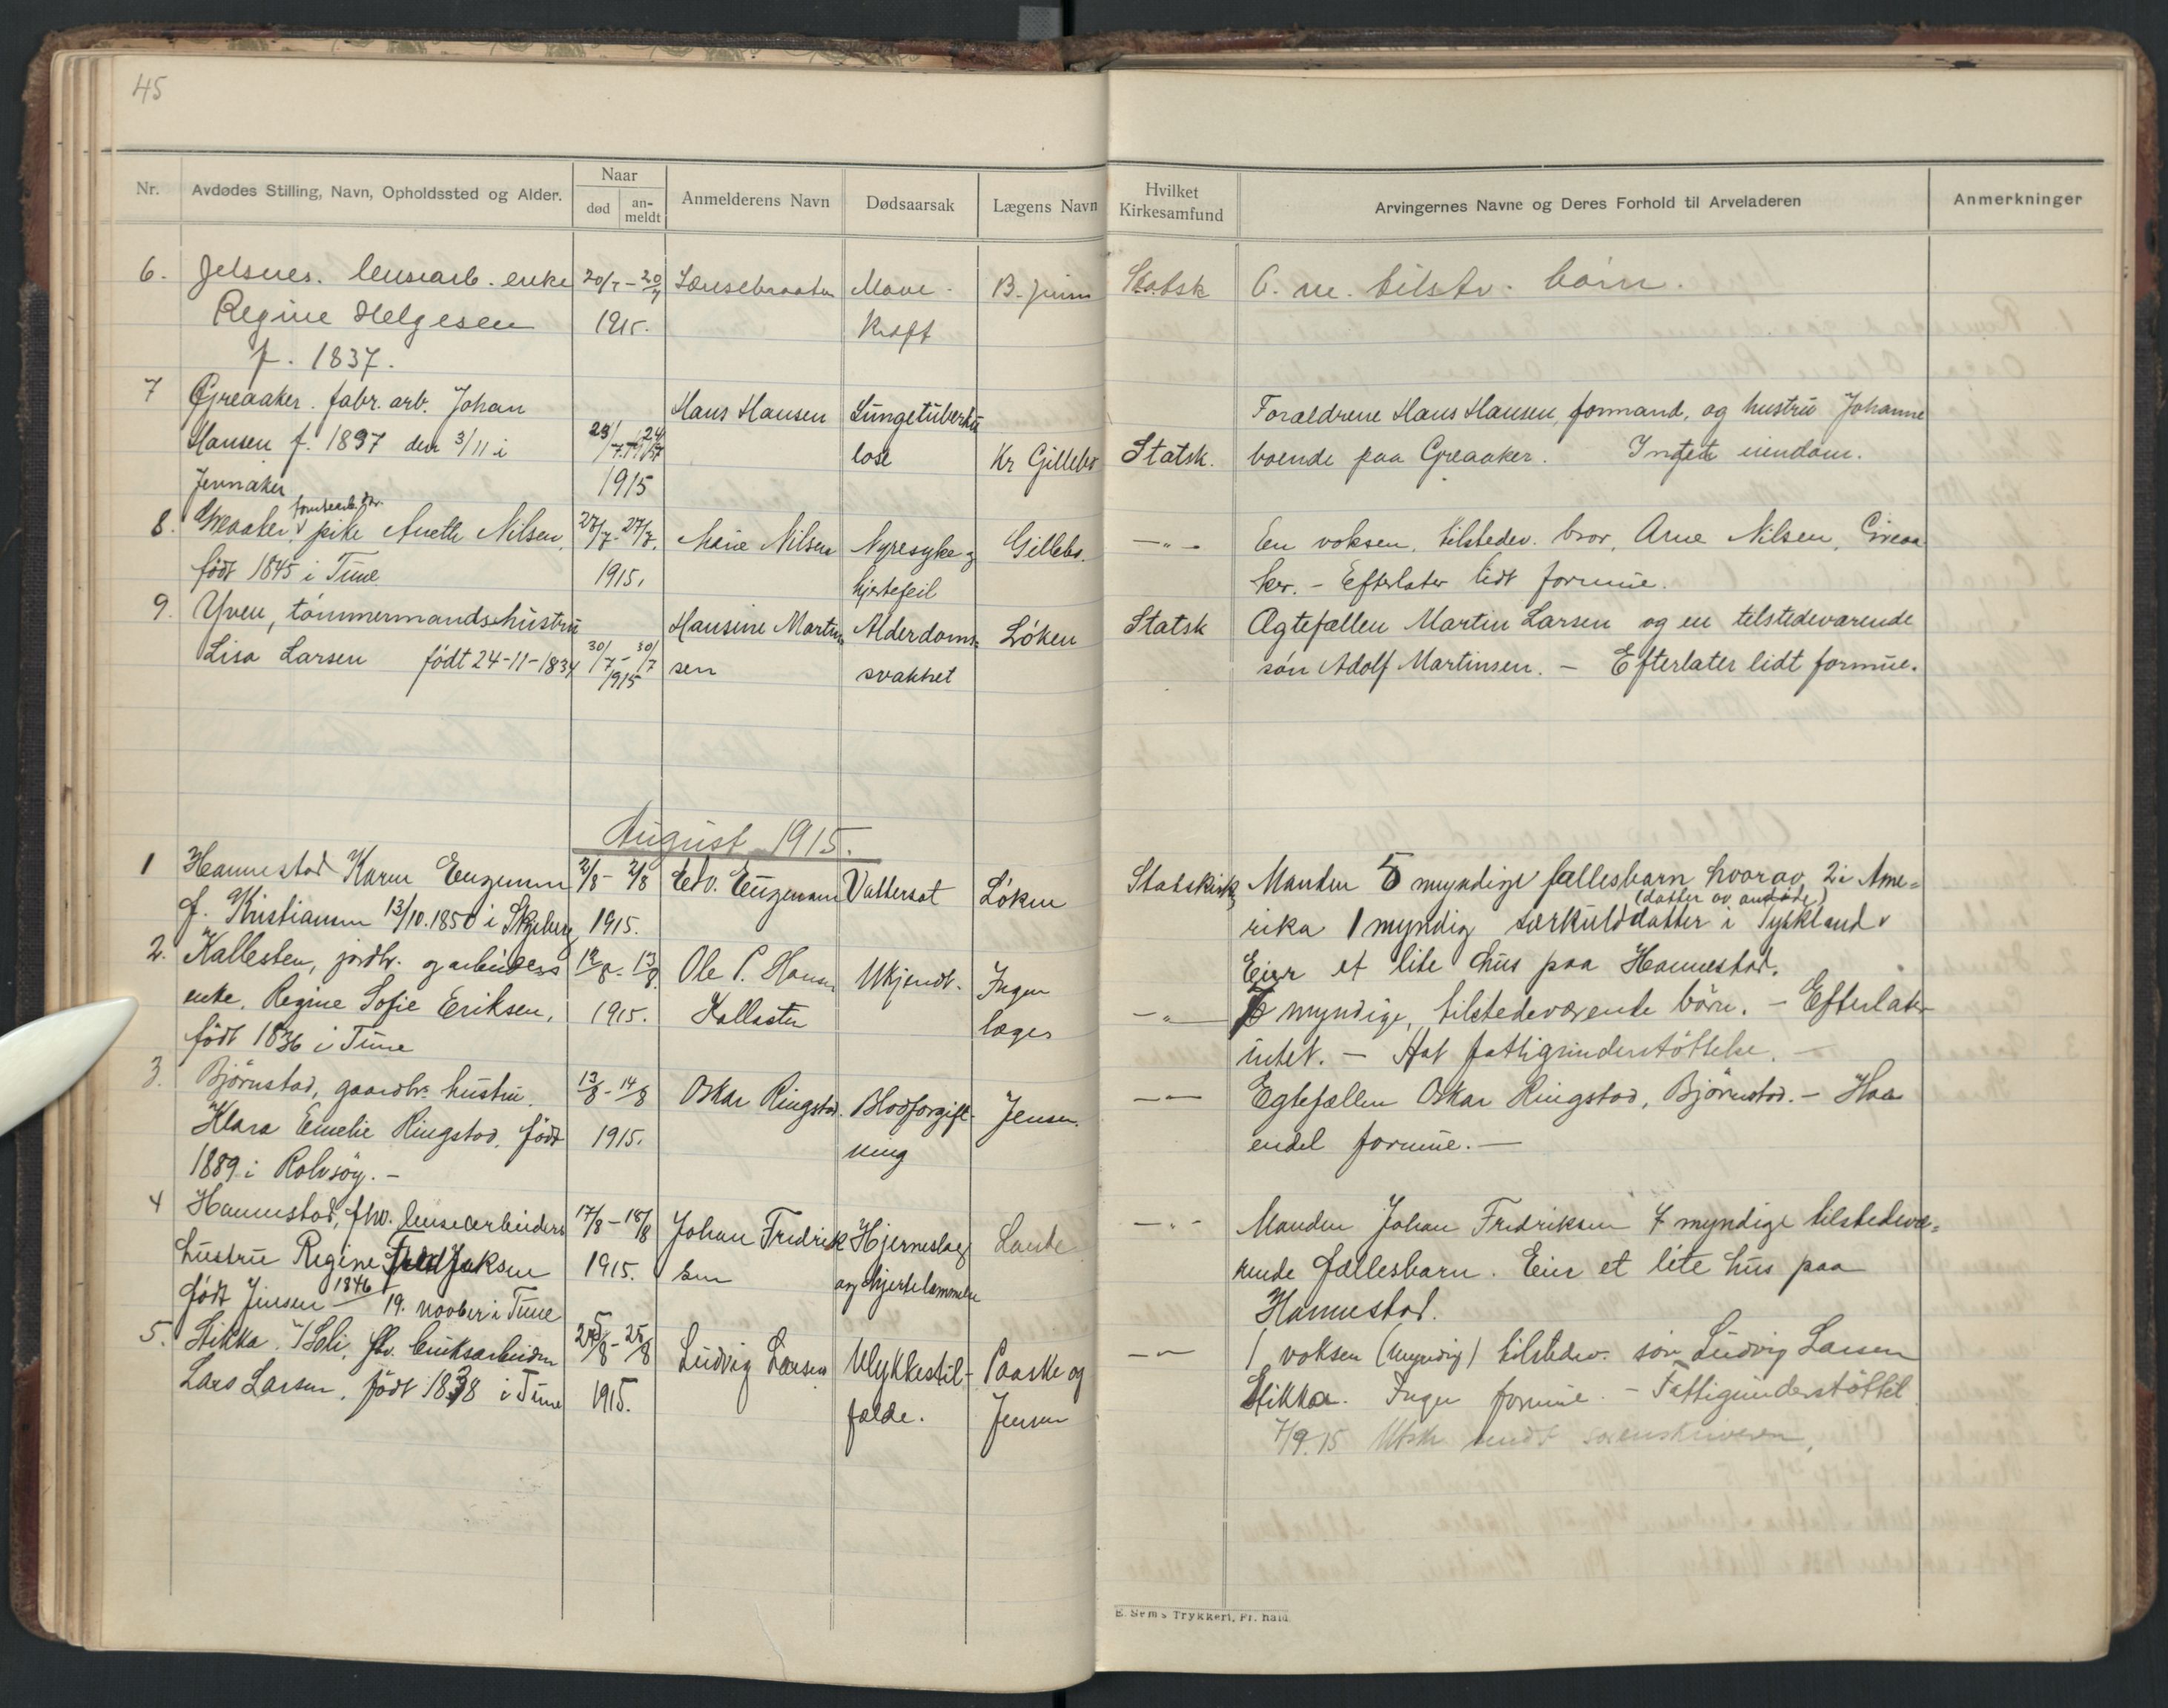 45
Nr. Avdødes Stilling, Navn, Opholdssted og Alder. Naar død an-meldt Anmelderens Navn Dødsaarsak Lægens Navn Hvilket Kirkesamfund Arvingernes Navne og Deres Forhold til Arveladeren Anmerkninger
6. Jelsnes. lensearb. enke 20/7 - 20/7 Lensebraaten Mave- B. Statsk 6. m. tilstv. børn.
Regine Helgesen 1915. kræft
f. 1837.
7 Greaaker. fabr. arb. Johan Hans Hansen Lungetuberku Forældrene Hans Hansen, formand, og hustru Johanne
Hansen f. 1897 den 3/11 i 23/7 - 24/7 lose Kr Gillebo Statsk. boende paa Greaaker. Ingen eiendom.
Jevnaker 1915
8. Greaaker, pike Anette Nilsen, 27/7 - 27/7. Marie Nilsen Nyresyke og Gillebo. -"- En voksen, tilstedev. bror, Arne Nilsen, Greaa
født 1845 i Tune 1915. hjertefeil ker. - Efterlater lidt formue.
9. Yven, tømmermandshustru Hansine Martin Alderdoms- Løken Statsk Ægtefællen Martin Larsen og en tilstedeværende
Lisa Larsen født 24-11-1834 30/7 - 30/7 1915 sen svakhet søn Adolf Martinsen. - Efterlater lidt formue.
August 1915.
1 Hannestad Karen Eugensen 2/8 - 2/8 Edv. Eugensen Vattersot Løken Statskirk Manden 5 myndige fællesbarn hvorav 2 i Ame=
(datter av avdøde)
f. Kristiansen 13/10.1850 i Skjeberg 1915. rika 1 myndig særkulddatter i Tyskland
Eier et lite hus paa Hannestad.
2. Kallesten, jordbr. og arbeiders 12/8 - 13/8 Ole P. Hansen Ukjendt. Ingen
enke. Regine Sofie Eriksen, 1915. Kallesten læge -"- myndige, tilstedeværende børn. - Efterlater
født 1836 i Tune intet. - Hat fattigunderstøttelse. -
3. Bjørnstad, gaardbr. hustru. 13/8 - 14/8 Oskar Ringstad. Blodforgift- Jensen. -"- Egtefællen Oskar Ringstad, Bjørnstad. - Har
Klara Emelie Ringstad, født 1915. ning endel formue. -
1889 i Rolvsøy. -
4 Hannestad, fhv. lensearbeiders 17/8 - 18/8 Johan Fredrik Hjerneslag Lande -"- Manden Johan Fredriksen 7 myndige tilstedevæ=
hustru Regine Fredriksen 1915. sen og hjertelammelse rende fællesbarn. Eier et lite hus paa
født Jensen 1846 19. novber i Tune Hannestad.
5. Stikka. Soli, fhv. bruksarbeider 25/8 - 25/8 Ludvig Larsen Ulykkestil- Paaske og -"- 1 voksen (myndig) tilstedev. søn Ludvig Larsen
Lars Larsen, født 1838 i Tune 1915. fælde. Jensen Stikka. Ingen formue. - Fattigunderstøttet
7/9.15 Utskr sendt sorenskriveren,
E. Sems Trykkeri, Fr. hald